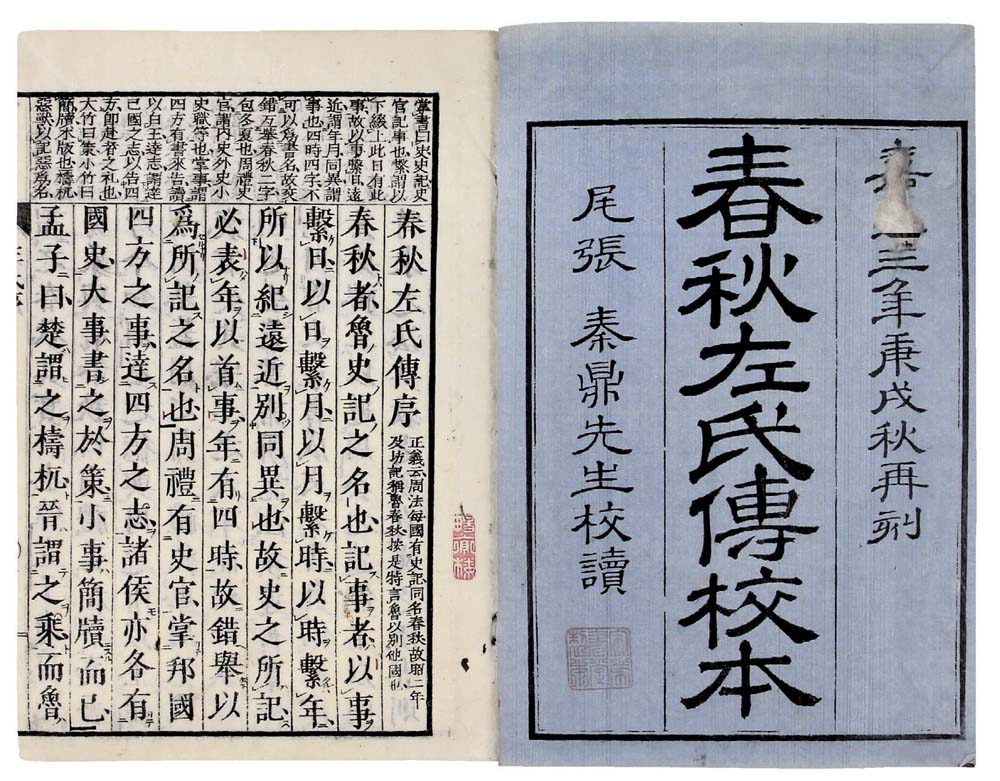 嘉
三年庚戌秋再刻
春秋左氏傳校本
尾張 秦鼎先生校讀
掌書曰史史記史
官記事也繫謂以
下綴上此日有此
事故以事繫日遠
近謂年月同異謂
事也四時四字不
可以為書名故交
錯互舉春秋二字
包冬夏也周禮史
官謂内史外史小
史職等也掌事謂
四方有書來告讀
以白王達志謂達
己國之志以告四
方即赴者之礼也
大竹曰策小竹曰
簡牘木版也檮杌
惡獸以記惡為名
春秋左氏傳序
正義云周法每國有史記同名春秋故昭二年
及坊記稱魯春秋按是特言魯以別他國也
春秋者魯史記之名也記事者以事
繫日以日繫月以月繫時以時繫年
所以紀遠近別同異也故史之所記
必表年以首事年有四時故錯舉以
爲所記之名也周禮有史官掌邦國
四方之事達四方之志諸侯亦各有
國史大事書之於策小事簡牘而已
孟子曰楚謂之檮杌晉謂之乘而魯